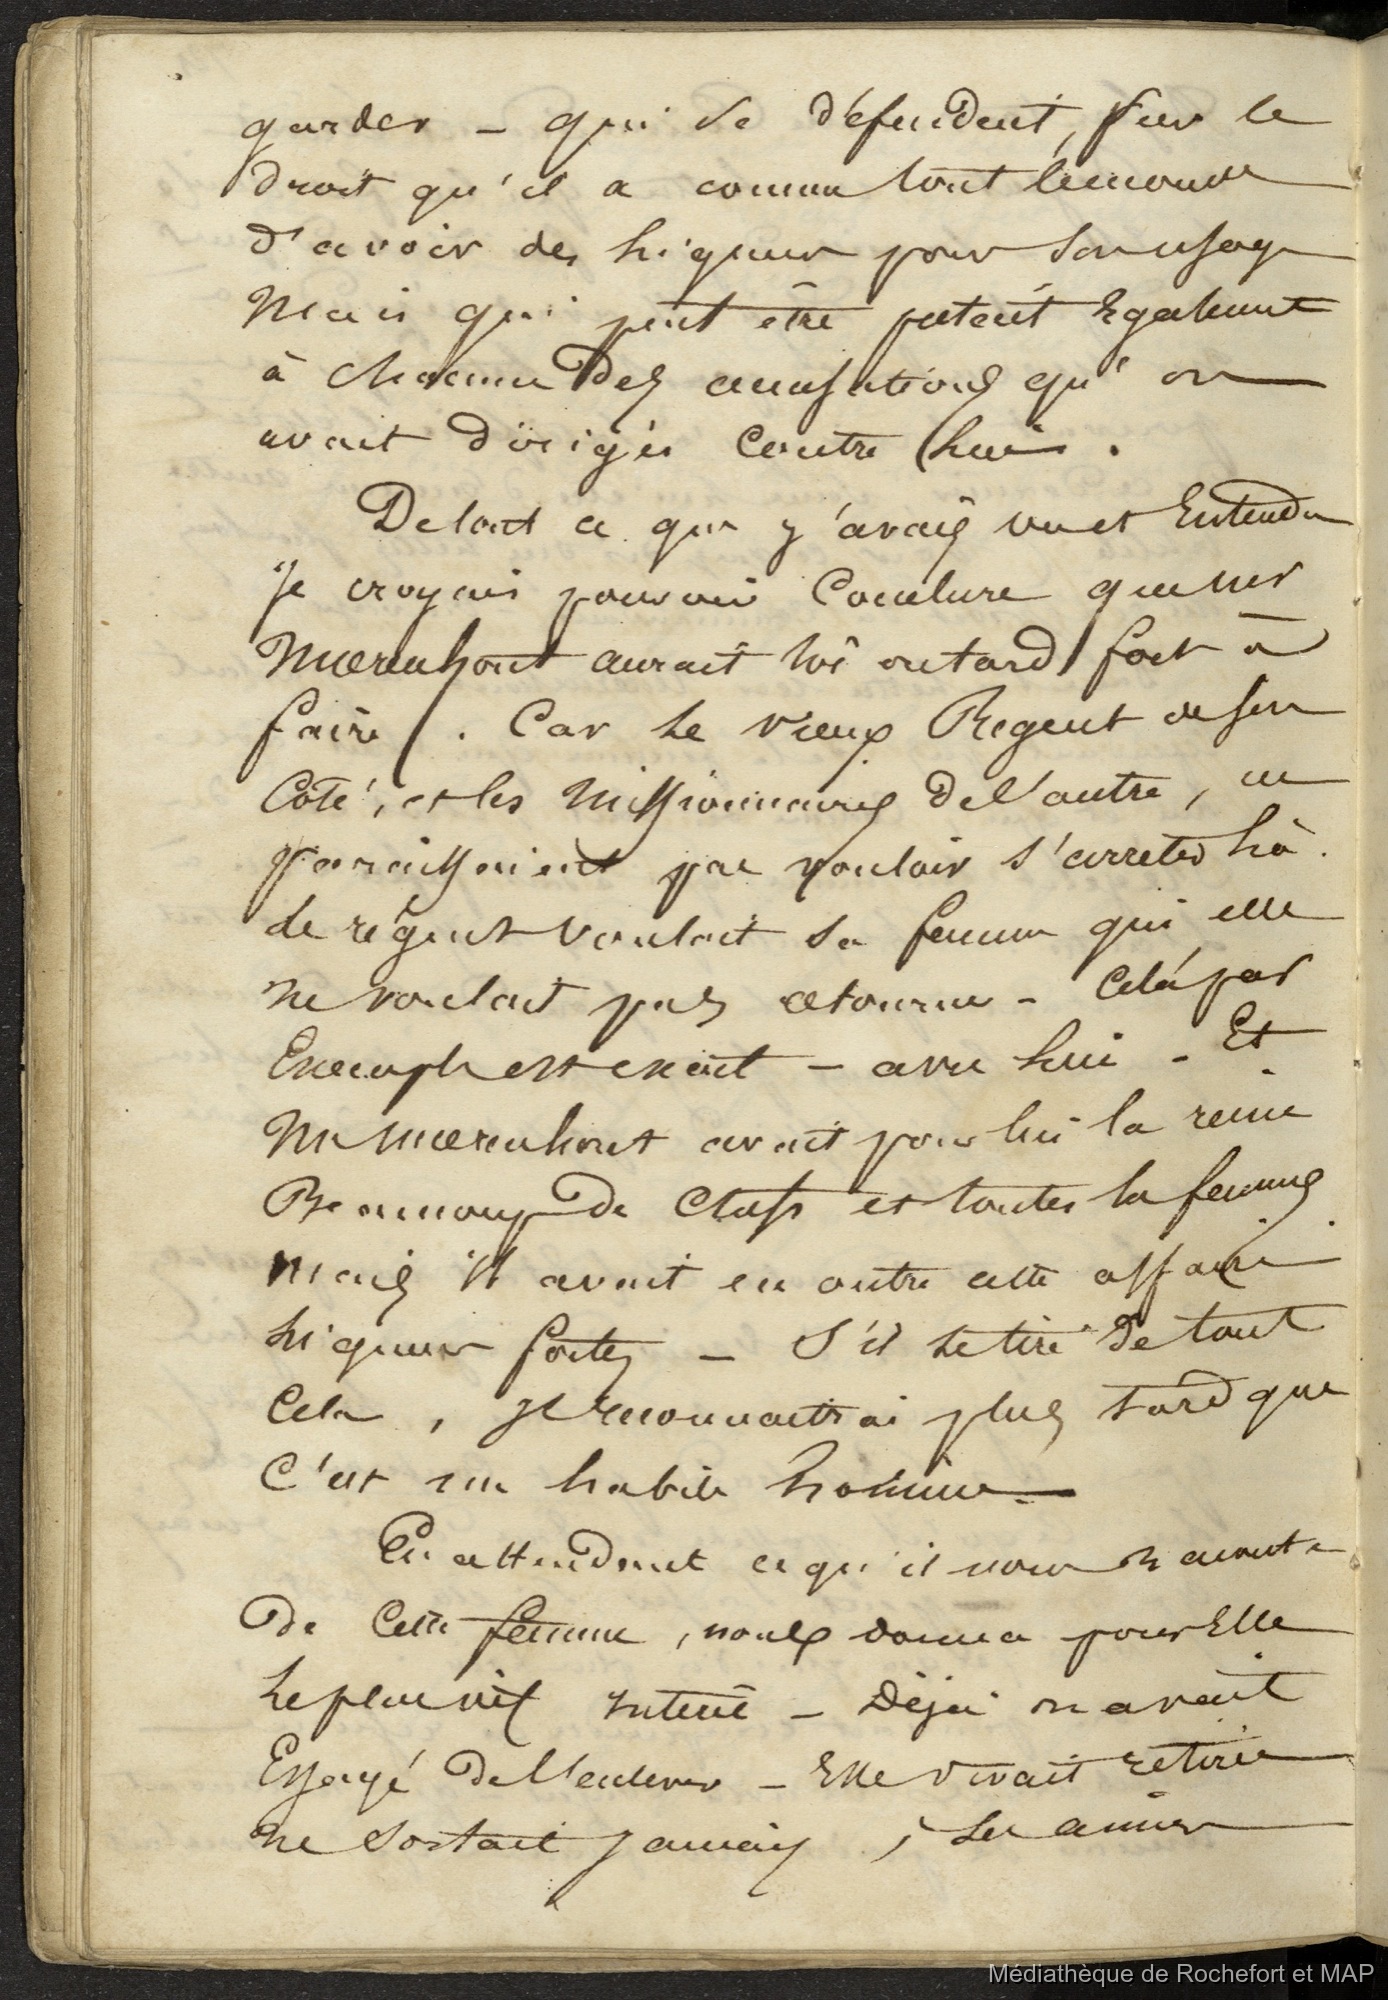 garder – qui se défendent, sur le
droit qu'il a comme tout lemonde
d'avoir des liqueur pour son usage
Mais qui peut être patait Egalement
à chacune des accusations qu'on
avait dirigés Contre lui.
De tout ce que j'avais vu et Entendu
Je croyais pouvoir Conclure que mr
Mœrenhout aurait tôt ou tard fort à
faire. Car le vieux Regent de son
Côté, et les Missionnaires De l'autre, ne
paraissaient pas vouloir s'arreter là.
Le régent voulait sa femme qui elle
ne voulait pas retourner – Celà par
Exemple est exact – avec lui – Et
Mr Mœrenhout avait pour lui la reine
Beaucoup De Chefs et toutes la femmes
mais il avait en outre cette affaire
liqueur fortes – S'il se tire De tout
Cela, je reconnaitrai plus tard que
C'est un habile homme –
En attendant ce qu'il nous raconta
De Cette femme, nous donna pour Elle
le plus vif intérêt – Déjà on avait
Essayé De l'enlever – Elle vivait retirée
ne sortait jamais, ses amies
Médiathèque de Rochefort et MAP